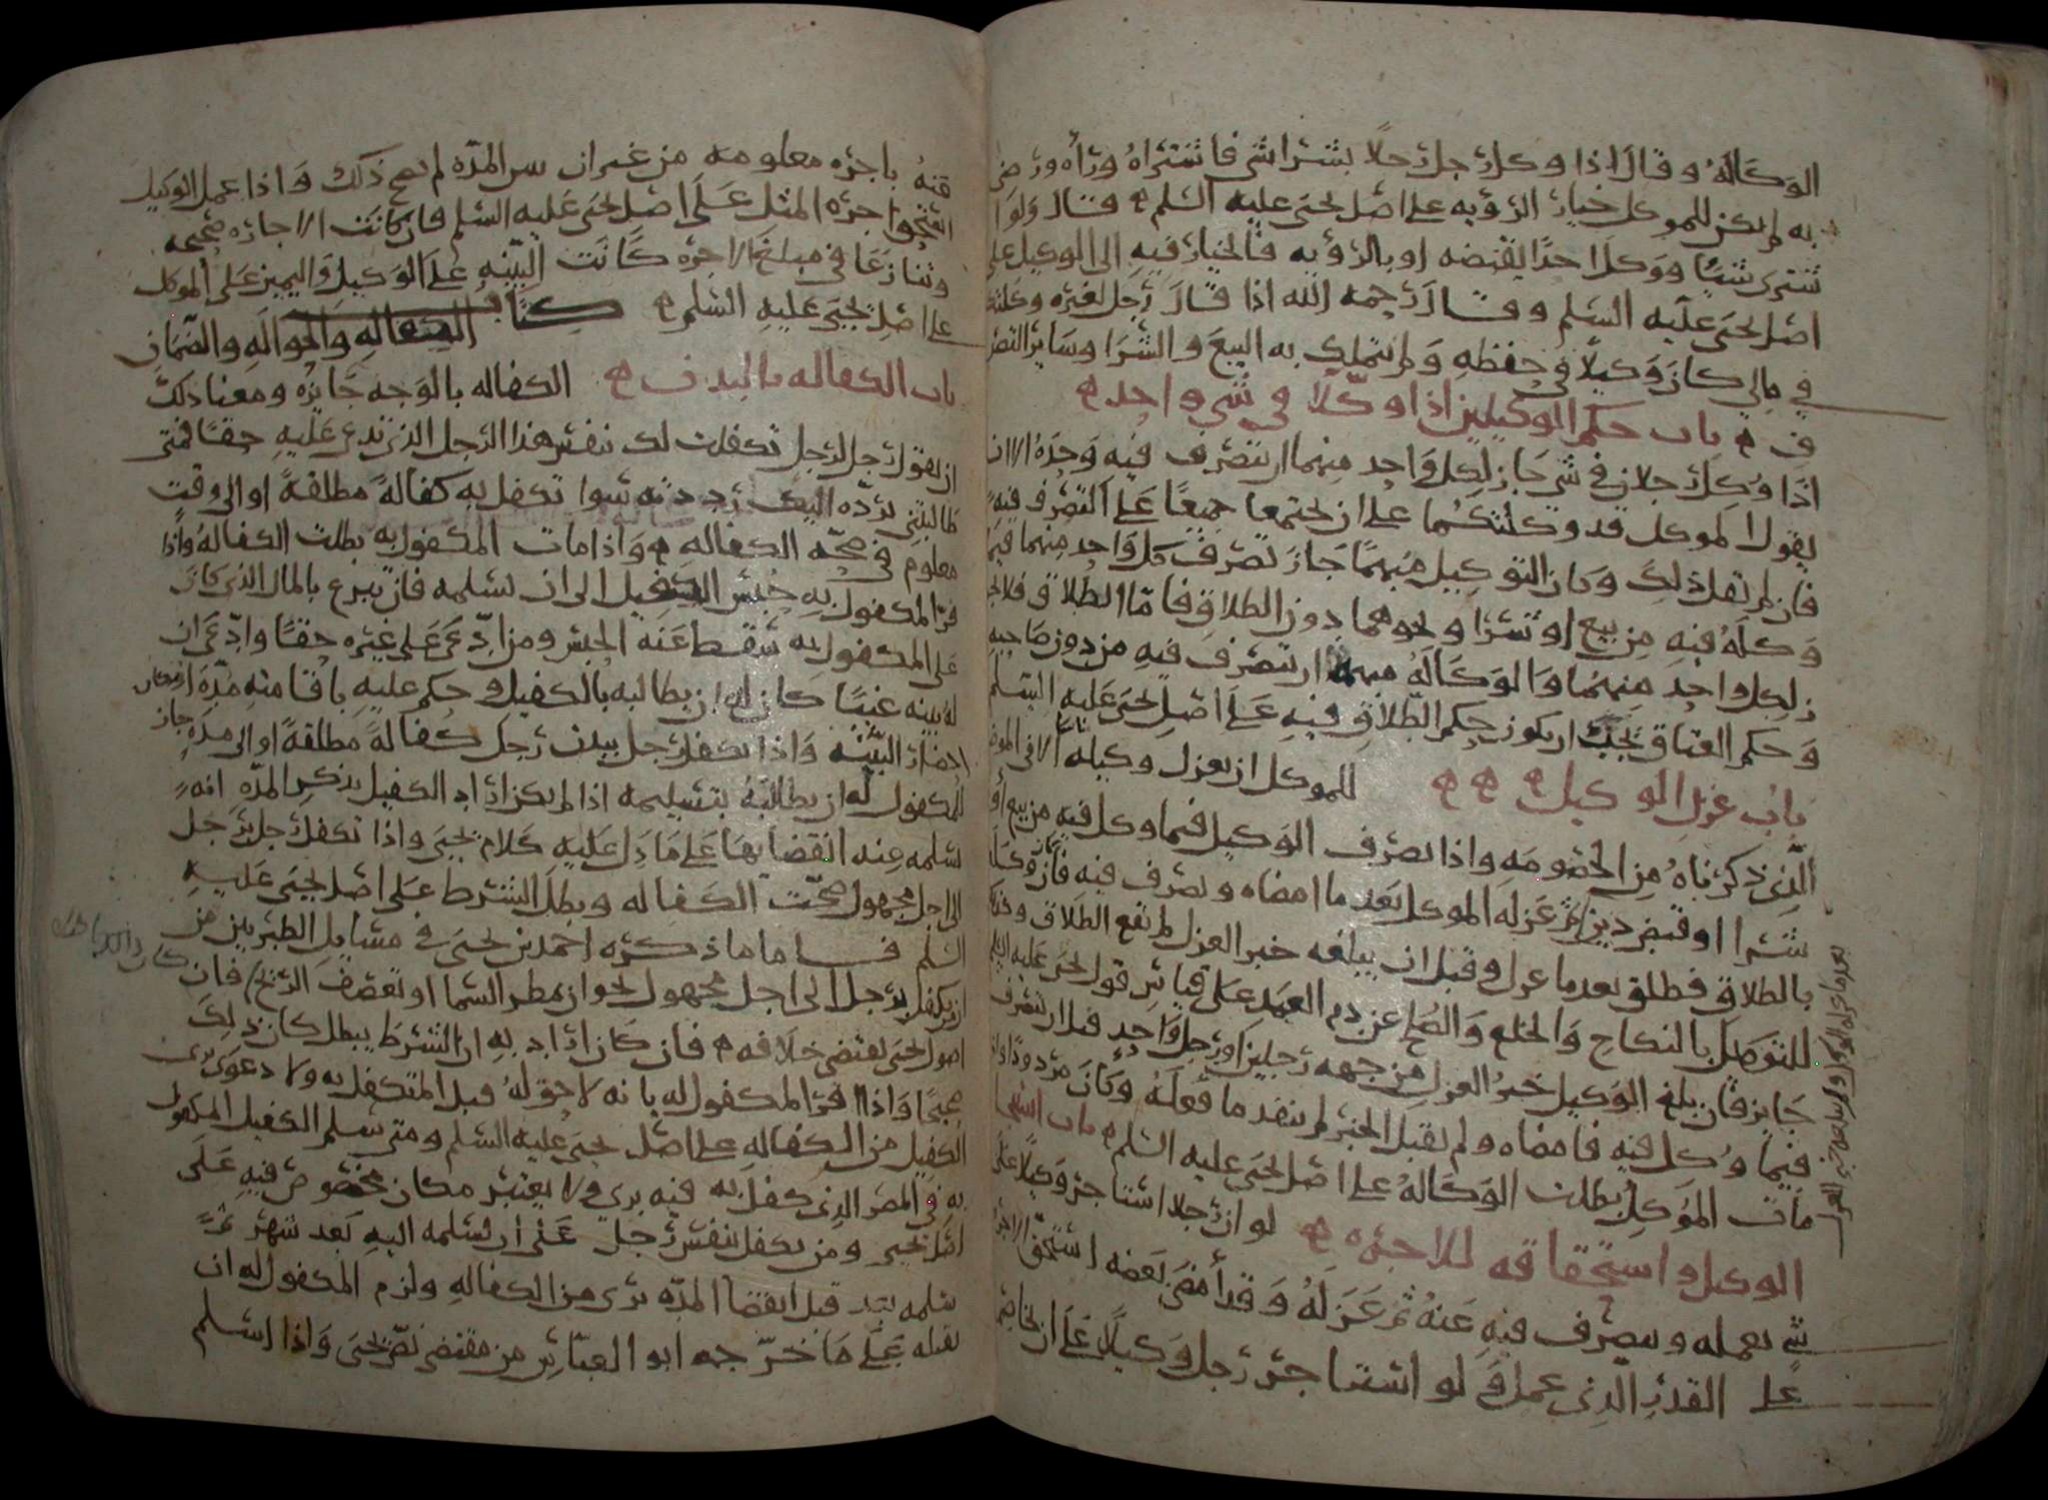 الوكالة وقال اذا وكل رجل رجلا بشرا شي فاشتراه وراه ورضي
به لم يكن للموكل خيار الرؤيه على اصل يحيى عليه السلم قال ولو
شترى شيئا ووكل احدا لقبضه او بالرؤيه فالخيار فيه الى الوكيل على
اصل يحيى عليه السلم وقال رحمه الله اذا قال رجل لغيره وكلتك
في مالي كان وكيلا في حفظه ولم يتملك به البيع والشرا وساير التصر
ف باب حكم الوكيلين اذا وكلا في شي واحد
اذا وكل رجلان في شي جاز لكل واحد منهما ان يتصرف فيه وحده الا ان
يقول الموكل قد وكلتكما على ان تجتمعا جميعا على التصرف فيه
فان لم يقل ذلك وكان التوكيل مبهما جاز تصرف كل واحد منهما فيما
وكله فيه من بيع او شرا ونحوهما دون الطلاق فاما الطلاق فلا يجو
ز لكل واحد منهما والوكالة مبهمة ان يتصرف فيه من دون صاحبه
وحكم العتاق يجب ان يكون حكم الطلاق فيه على اصل يحيى عليه السلم
باب عزل الوكيل للموكل ان يعزل وكيله الا في الموضع
الذي ذكرناه من الخصومه واذا تصرف الوكيل فيما وكل فيه من بيع او
شرا او قبض دين ثم عزله الموكل بعد ما امضاه وتصرف فيه فان وكله
بالطلاق فطلق بعد ما عزل وقبل ان يبلغه خبر العزل لم يقع الطلاق وكذلك
للتوصل بالنكاح والخلع والصلح عن دم العمد على قياس قول يحيى عليه السلم
جايز فان بلغ الوكيل خبر العزل من جهه رجلين او رجل واحد قبل ان يتصرف
فيما وكل فيه فامضاه ولم يقبل الخبر لم ينفد ما فعله وكان مردودا واذا
مات الموكل بطلت الوكالة على اصل يحيى عليه السلم باب استيجا
الوكيل واستحقاقه للاجره لو ان رجلا استاجر وكيلا على
شي يعمله ويتصرف فيه عنه ثم عزله وقد امضى بعضه استحق الاجره
على القدر الذي عمل ولو استاجر رجل وكيلا على ان يخاصم
قنه باجره معلومه من غير ان يبين المده لم يصح ذلك واذا عمل الوكيل
استحق اجره المثل على اصل يحيى عليه السلم فان كانت الاجاره صحيحه
وتنازعا في مبلغ الاجره كانت البينه على الوكيل واليمين على الموكل
على اصل يحيى عليه السلم كتاب الكفاله والحواله والضمان
باب الكفاله بالبدن الكفاله بالوجه جايزه ومعنا ذلك
ان يقول رجل لرجل تكفلت لك بنفس هذا الرجل الذي تدعي عليه حقا فمتى
طالبتني برده اليك رددته سوا تكفل به كفالة مطلقة او الى وقت
معلوم في صحه الكفاله واذا مات المكفول به بطلت الكفالة واذا
فر المكفول به حبس الكفيل الى ان يسلمه فان تبرع بالمال الذي كان
على المكفول به سقط عنه الحبس ومن ادعى على غيره حقا وادعى ان
له بينه غيبا كان له ان يطالبه بالكفيل وحكم عليه باقامته مده امكان
احضار البينه واذا تكفل رجل ببدن رجل كفالة مطلقة او الى مده جاز
للمكفول له ان يطالبه بتسليمه اذا لم يكن اراد الكفيل بذكر المده انه
يسلمه عند انقضايها على ما دل عليه كلام يحيى واذا تكفل رجل برجل
الى اجل مجهول صحت الكفاله وبطل الشرط على اصل يحيى عليه
السلم فاما ما ذكره احمد بن يحيى في مسايل الطبريين من
ان يتكفل برجل الى اجل مجهول نحو ان يمطر السما او تعصف الريح فان
اصول يحيى تقتضي خلافه فان كان اراد به ان الشرط يبطل كان ذلك
صحيحا واذا اقر المكفول له بانه لا حق له قبل المتكفل به ولا دعوى برئ
الكفيل من الكفاله على اصل يحيى عليه السلم ومتى سلم الكفيل المكفول
به في المصر الذي كفل به فيه بري ولا يعتبر مكان مخصوص فيه على
اصل يحيى ومن تكفل بنفس رجل على ان يسلمه اليه بعد شهر ثم
سلمه اليه قبل انقضا المده برى من الكفاله ولزم المكفول له ان
يقبله على ما خرجه ابو العباس من مقتضى نص يحيى واذا اسلم